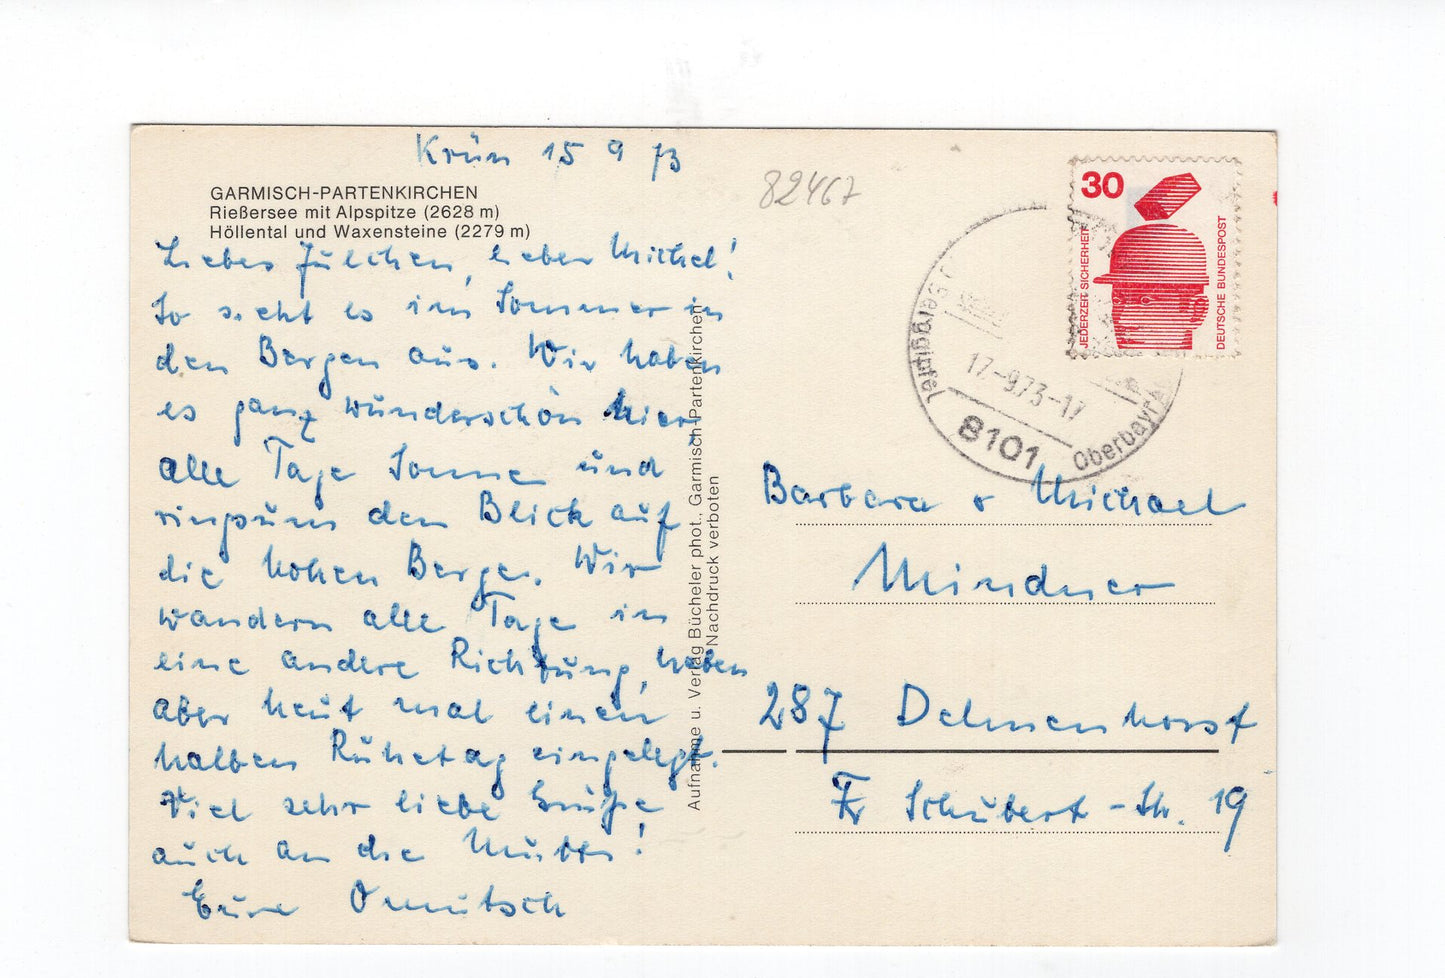 Krün 15 9 73
GARMISCH-PARTENKIRCHEN
Rießersee mit Alpspitze (2628 m)
Höllental und Waxensteine (2279 m)
Liebes Julchen, lieber Michel!
So sieht es im Sommer in
den Bergen aus. Wir haben
es ganz wunderschön hier,
alle Tage Sonne und
ringsum den Blick auf
die hohen Berge. Wir
wandern alle Tage in
eine andere Richtung, haben
aber heut mal einen
halben Ruhetag eingelegt.
Viel sehr liebe Grüße
auch an die Mutti!
Eure Omutsch
Aufnahme u. Verlag Bücheler phot., Garmisch-Partenkirchen
Nachdruck verboten
82467
30
JEDERZEIT SICHERHEIT
DEUTSCHE BUNDESPOST
17.-9.73-17
8101
Oberbayr
Barbara + Michael
Mindner
287 Delmenhorst
Fr Schubert-Str. 19